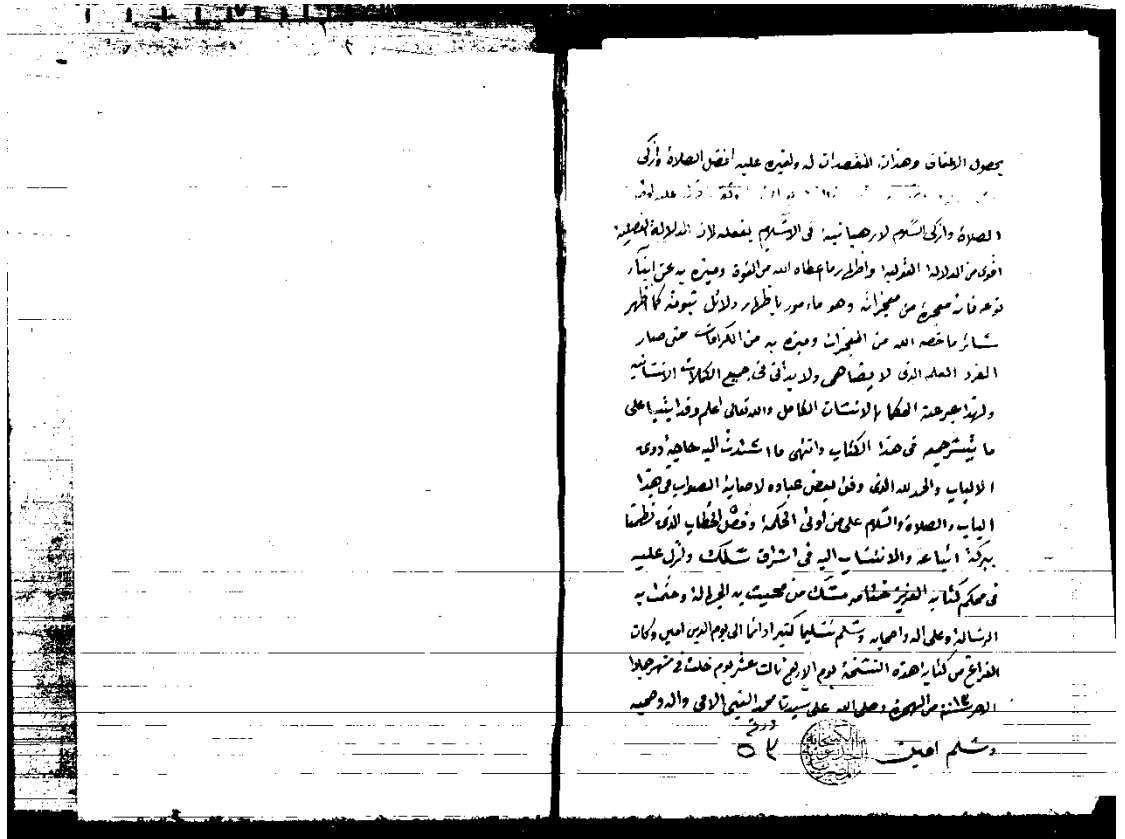 بحصول الاعفاف وهذان المقصدان له ولغيره عليه افضل الصلاة وازكى
عليه افضل
الصلاة وازكى السلام لا رهبانية فى الاسلام بفعله لان الدلالة الفعلية
اقوى من الدلالة القولية واظهار ما اعطاه الله من القوة وميزه به عن ابنآء
نوعه فانه معجزة من معجزاته وهو مامور باظهار دلائل نبوته كما اظهر
سائر ما خصه الله من المعجزات وميزه به من الكرامات حتى صار
الفرد العلم الذى لا يضاهى ولا يدانى فى جميع الكمالات الانسانيه
ولهذا عبر عنه الحكما بالانسان الكامل والله تعالى اعلم وقد اتينا على
ما تيسر جمعه فى هذا الكتاب وانتهى ما اشتدت اليه حاجة ذوى
الالباب والحمد لله الذى وفق بعض عباده لاصابة الصواب فى هذا
الباب والصلاة والسلام على من اوتى الحكمة وفصل الخطاب الذى نظمنا
ببركة اتباعه والانتساب اليه فى اشرف سلك ونزل عليه
فى محكم كتابه العزيز ختامه مسك من محيت به الجهالة وختمت به
الرسالة وعلى اله واصحابه وسلم تسليما كثيرا دائما الى يوم الدين امين وكان
الفراغ من كتابة هذه النسخة يوم الاربع ثالث عشر يوم خلت فى شهر جمادا
من الهجرة وصلى الله على سيدنا محمد النبي الامى واله وصحبه
وسلم امين
ورق
٥٢